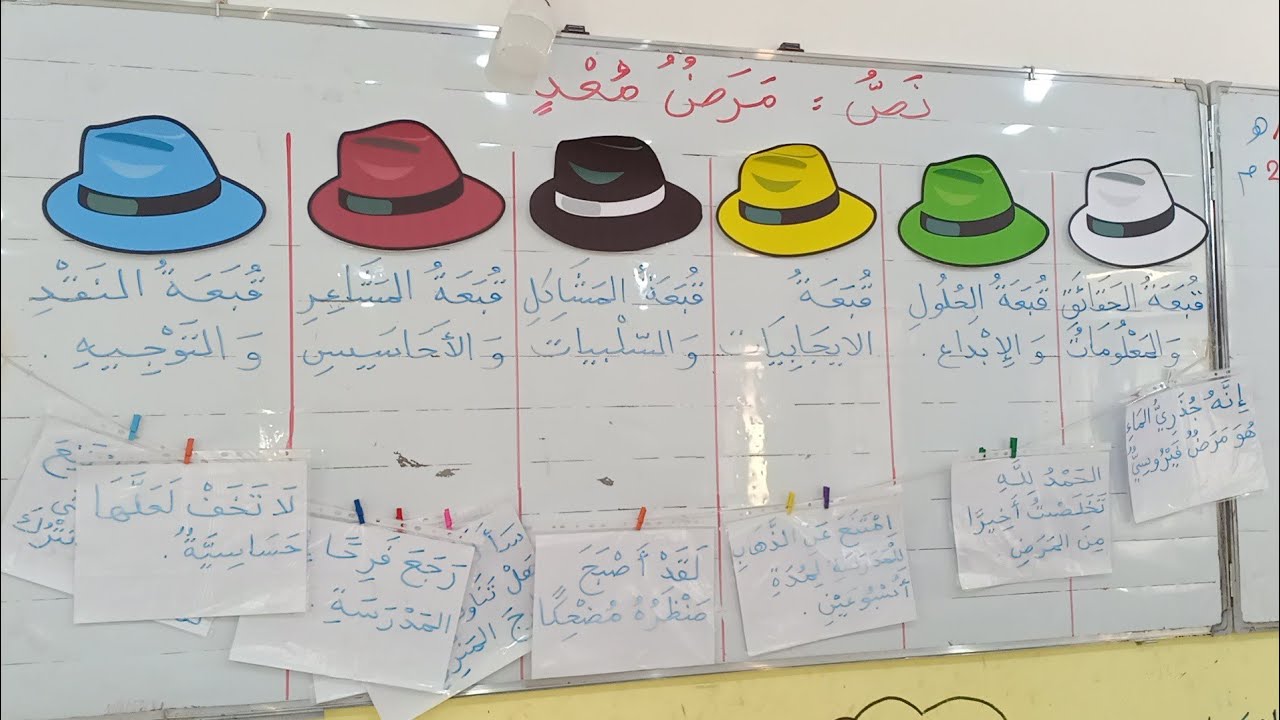 نَصُّ : مَرَضٌ مُعْدٍ
قُبَعَةُ الحَقَائِقِ
وَالمَعْلُومَاتُ
قُبَعَةُ الحُلُولِ
وَ الإِبْدَاع .
قُبَعَةُ
الايجَابِيَات
قُبَعَةُ المَشَاكِلِ
وَ السّلْبِيات
قُبَعَةُ المَشَاعِرِ
وَ الأَحَاسِيسِ
قُبَعَةُ النَقْدِ
وَ التَوْجِيهِ .
إِنَّهُ جُدَرِيُّ المَاءِ
هُوَ مَرَضٌ فَيْرُوسِيٌّ
الحَمْدُ لِلَّهِ
تَخَلَصْتُ أَخِيرًا
مِنَ المَرَضِ
اِمْتَنِعْ عَنِ الذَّهَابِ
لِلْمَدْرَسَةِ لِمُدَةِ
أُسْبُوعَيْنِ .
لَقَدْ أَصْبَحَ
مَنْظَرُهُ مُضْحِكًا
رَجَعَ فَرِحًا
المَدْرَسَةِ .
لَا تَخَفْ لَعَلَّهَا
حَسَاسِيَّةٌ .